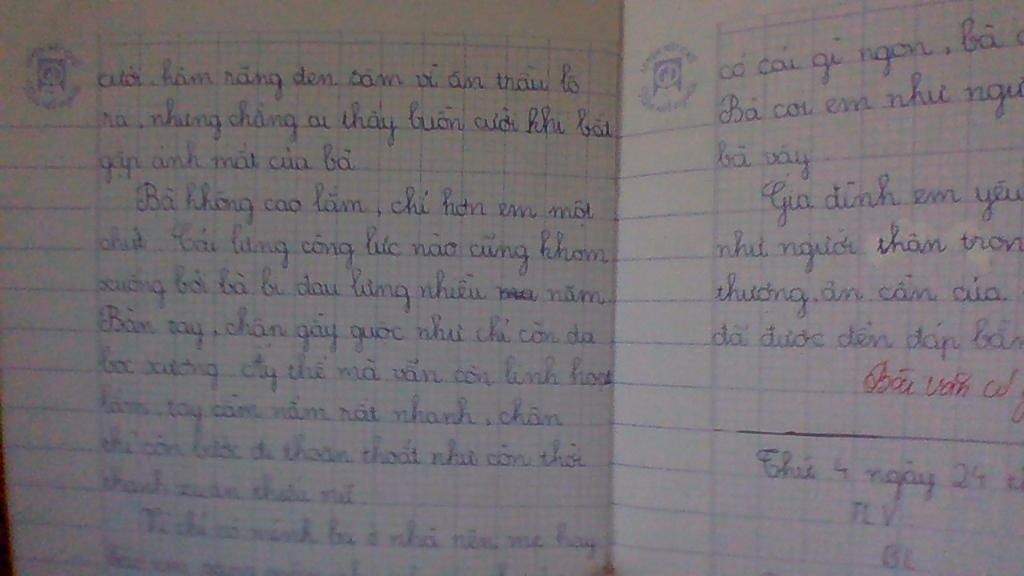 cười, hàm răng đen sạm vì ăn trầu lộ
ra, nhưng chẳng ai thấy buồn cười khi bắt
gặp ánh mắt của bà
Bà không cao lắm, chỉ hơn em một
chút. Cái lưng còng lúc nào cũng khom
xuống bởi bà bị đau lưng nhiều năm.
Bàn tay, chân gầy guộc như chỉ còn da
bọc xương. Ấy thế mà vẫn còn linh hoạt
lắm, tay cầm nắm rất nhanh, chân
thì còn bước đi thoăn thoắt như còn thời
thanh xuân thiếu nữ.
Vì chỉ có mình bà ở nhà nên mẹ hay
có cái gì ngon, bà
Bà coi em như ngư
bà vậy
Gia đình em yêu
như người thân tron
thương, ân cần của
đã được đền đáp bằn
Bài văn
Thứ 4 ngày 24
TLV